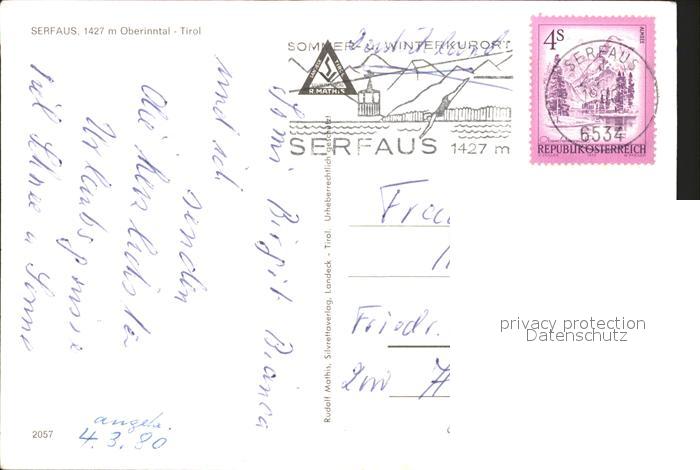 SERFAUS, 1427 m Oberinntal - Tirol
SOMMER- u. WINTERKURORT
R. MATHIS
SERFAUS 1427 m
4S
REPUBLIK ÖSTERREICH
SERFAUS
6534
Birgit Bianca
und ich
senden
die herzlichsten
Urlaubsgrüsse
viel Schnee u Sonne
Rudolf Mathis, Silvrettaverlag, Landeck - Tirol. Urheberrechtlich geschützt!
Frau
Friedr.
privacy protection
Datenschutz
2057
angek.
4.3.80